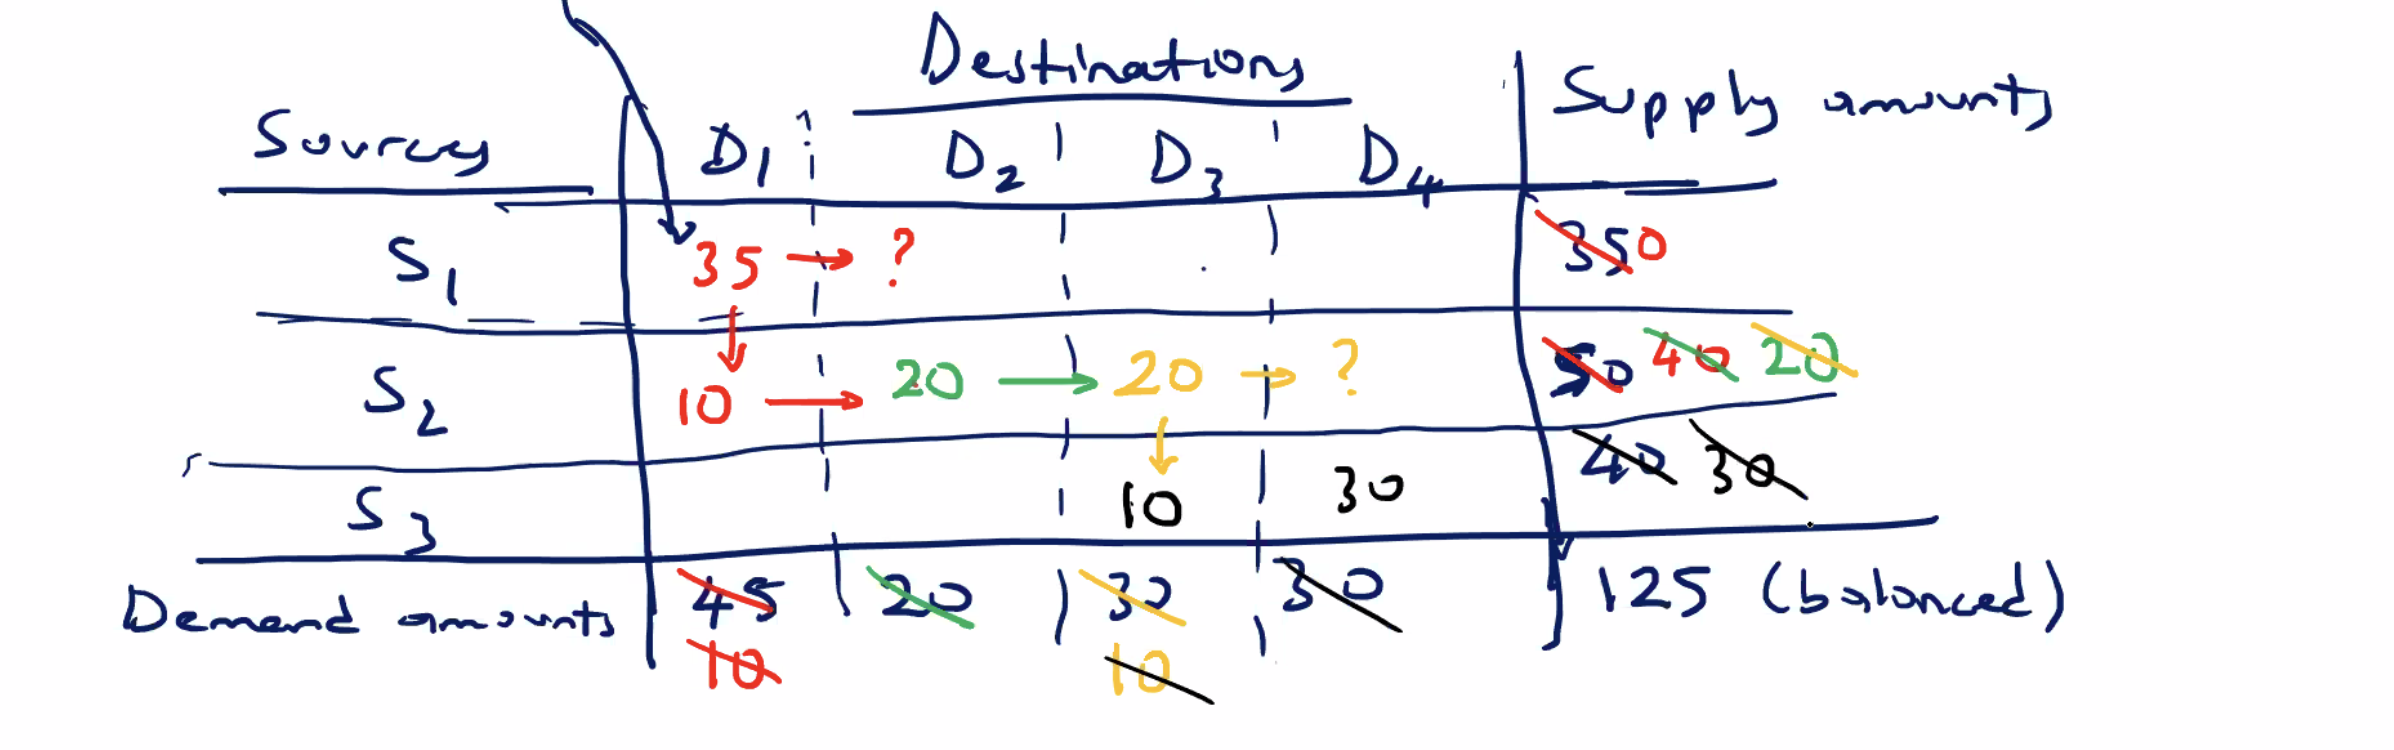 Destinations
Sources D1 D2 D3 D4 Supply amounts
S1 35 → ? 35 0
S2 10 → 20 → 20 → ? 50 40 20
S3 10 30 40 30
Demand amounts 45 20 30 30 125 (balanced)
10 10